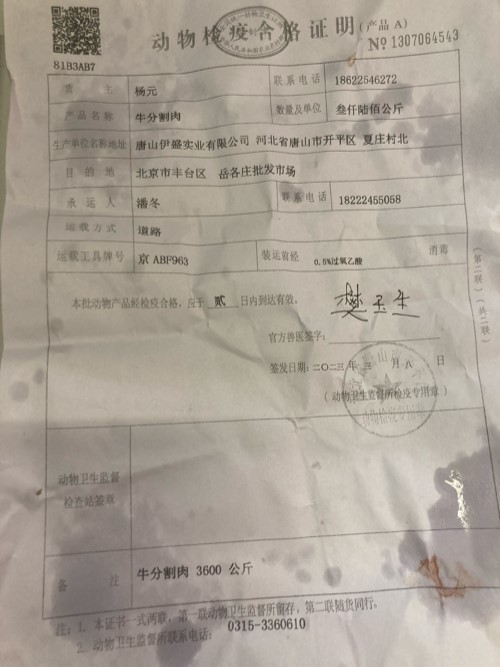 动物检疫合格证明(产品 A)
№ 1307064543
81B3AB7
货 主 杨元 联系电话 18622546272
产品名称 牛分割肉 数量及单位 叁仟陆佰公斤
生产单位名称地址 唐山伊盛实业有限公司 河北省唐山市开平区 夏庄村北
目的地 北京市丰台区 岳各庄批发市场
承运人 潘冬 联系电话 18222455058
运载方式 道路
运载工具牌号 京 ABF963 装运前经 0.5%过氧乙酸 消毒
本批动物产品经检疫合格，应于 贰 日内到达有效。
官方兽医签字：樊玉生
签发日期：二〇二三 年 三 月 八 日
（动物卫生监督所检疫专用章）
动物卫生监督
检查站签章
备 注 牛分割肉 3600 公斤
注：1. 本证书一式两联，第一联动物卫生监督所留存，第二联随货同行。
2. 动物卫生监督所联系电话：0315-3360610
（第二联）（共二联）